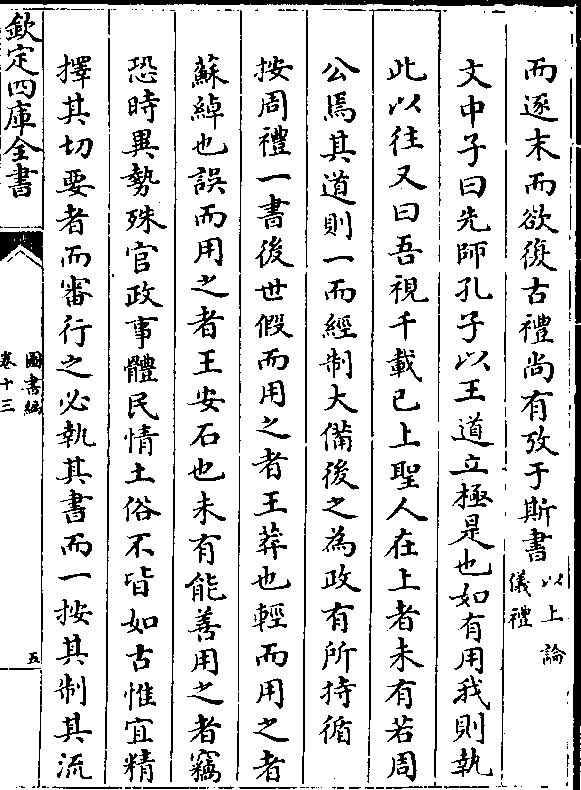 而逐末而欲復古禮尚有攷于斯書以上論儀禮
文中子曰先師孔子以王道立極是也如有用我則執
此以往又曰吾視千載已上聖人在上者未有若周
公焉其道則一而經制大備後之為政有所持循
按周禮一書後世假而用之者王莽也輕而用之者
蘇綽也誤而用之者王安石也未有能善用之者竊
恐時異勢殊官政事體民情土俗不皆如古惟宜精
擇其切要者而審行之必執其書而一按其制其流
欽定四庫全書
圖書編
卷十三
五